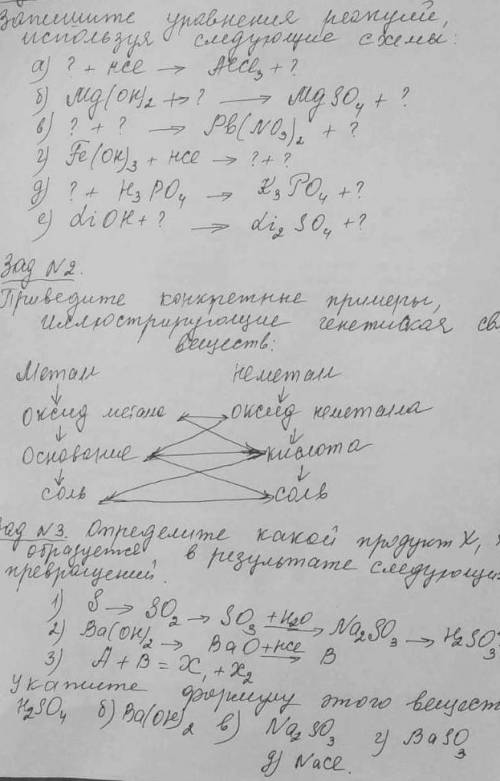 Запишите уравнения реакций,
используя следующие схемы:
а) ? + HCl → AlCl₃ + ?
б) Mg(OH)₂ + ? → MgSO₄ + ?
в) ? + ? → Pb(NO₃)₂ + ?
г) Fe(OH)₃ + HCl → ? + ?
д) ? + H₃PO₄ → K₃PO₄ + ?
е) LiOH + ? → Li₂SO₄ + ?
Зад N2.
Приведите конкретные примеры,
иллюстрирующие генетическая
веществ:
Метал неметал
оксид метала оксид неметалла
основание кислота
соль соль
Зад N3. Определите какой продукт X,
образуется в результате
превращений.
1) S → SO₂ → SO₃ +H₂O → Na₂SO₃ → H₂SO₃
2) Ba(OH)₂ → BaO +HCl → B
3) A + B = X₁ + X₂
Укажите формулу этого
H₂SO₄ б) Ba(OH)₂ в) Na₂SO₃ г) BaSO₃
д) NaCl.